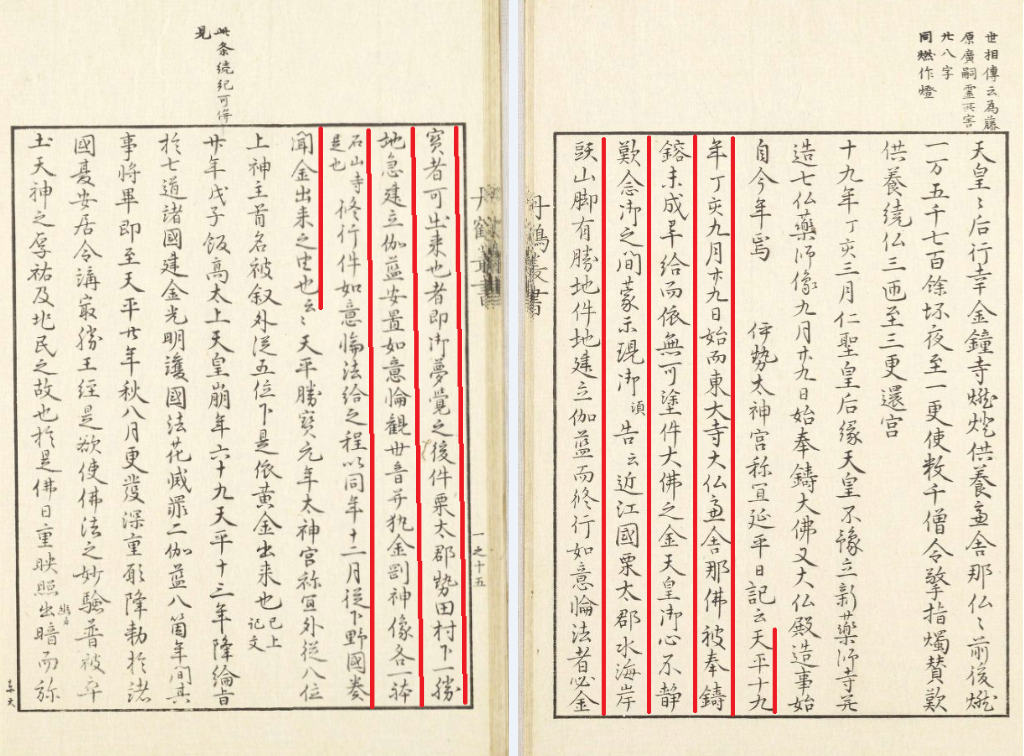 世相傳云為藤
原廣嗣霊所害
廿八字
同燃作燈
天皇〻后行幸金鐘寺燃燈供養盧舎那仏〻前後燃
一万五千七百餘坏夜至一更使数千僧令擎指燭賛歎
供養繞仏三匝至三更還宮
十九年丁亥三月仁聖皇后縁天皇不豫立新薬師寺并
造七仏薬師像九月廿九日始奉鑄大佛又大仏殿造事始
自今年焉　伊勢太神宮祢宜延平日記云天平十九
年丁亥九月廿九日始而東大寺大仏盧舎那佛被奉鑄
鎔未成畢給而依無可塗件大佛之金天皇御心不静
歎念御之間蒙示現御須告云近江國栗太郡水海岸
頭山脚有勝地件地建立伽藍而修行如意輪法者必金
丹鶴叢書
此条続紀可併
見
丹鶴叢書
一之十五
寳者可出来也者即御夢覚之後件栗太郡勢田村下一勝
地急建立伽藍安置如意輪観世音并執金剛神像各一躰
石山寺是也修行件如意輪法給之程以同年十二月従下野國奏
聞金出来之由也云〻天平勝寳元年太神宮祢宜外従八位
上神主首名被叙外従五位下是依黄金出来也已上記文
廿年戊子飯高太上天皇崩年六十九天平十三年降綸旨
於七道諸國建金光明護國法花滅罪二伽藍八箇年間其
事将畢即至天平廿年秋八月更發深重願降勅於諸
國夏安居令講最勝王経是欲使佛法之妙験普被率
土天神之厚祐及兆民之故也於是佛日重映照出暗而弥